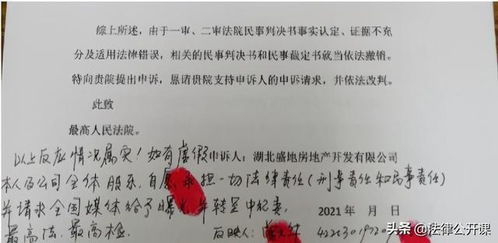 综上所述，由于一审、二审法院民事判决书事实认定、证据不充
分及适用法律错误，相关的民事判决书和民事裁定书就当依法撤销。
特向贵院提出申诉，恳请贵院支持申诉人的申诉请求，并依法改判。
此致
最高人民法院。
以上反应情况属实！如有虚假
申诉人：湖北盛地房地产开发有限公司
本人及公司全体股东，自愿承担一切法律责任（刑事责任和民事责任）
并请求全国媒体给予曝光并转呈中纪委、
2021年 月 日
最高法、最高检。
反映人：
头条 @法律公开课